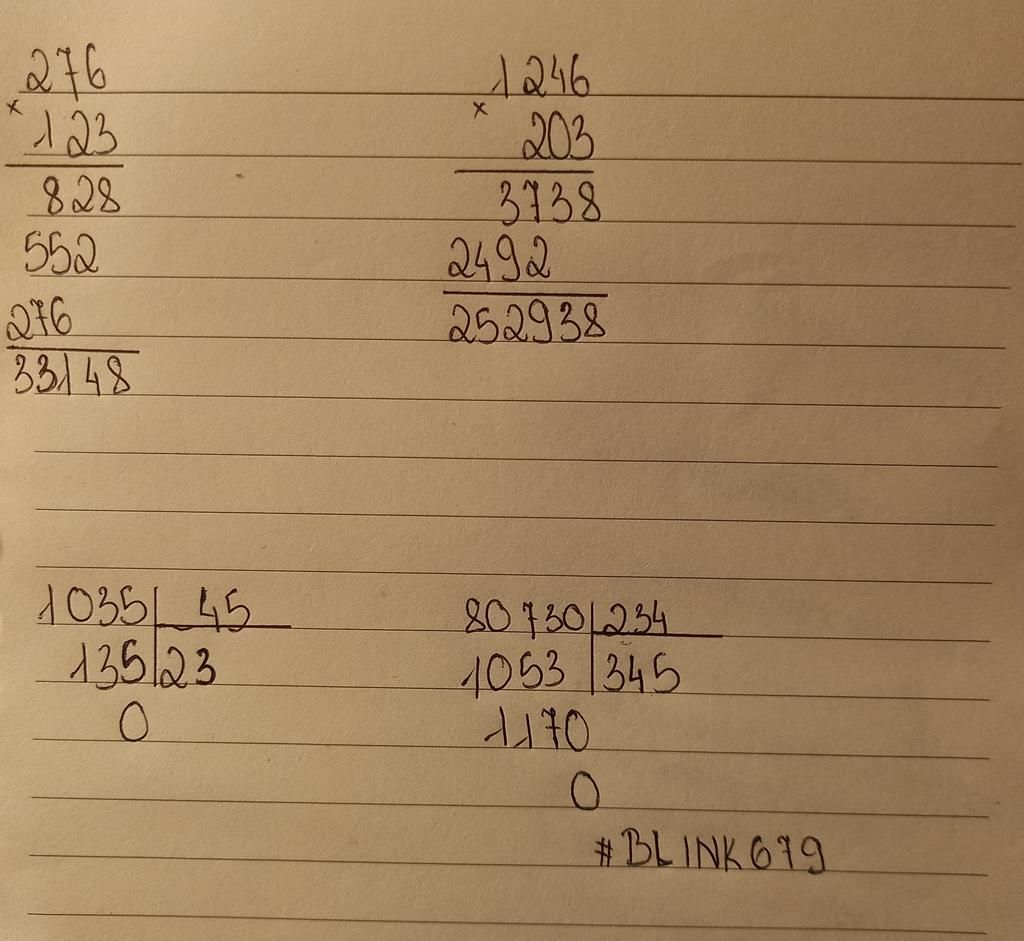 276
× 123
828
552
276
33148
1246
× 203
3738
2492
252938
1035 45
135 23
0
80730 234
1053 345
1170
0
#BLINK679